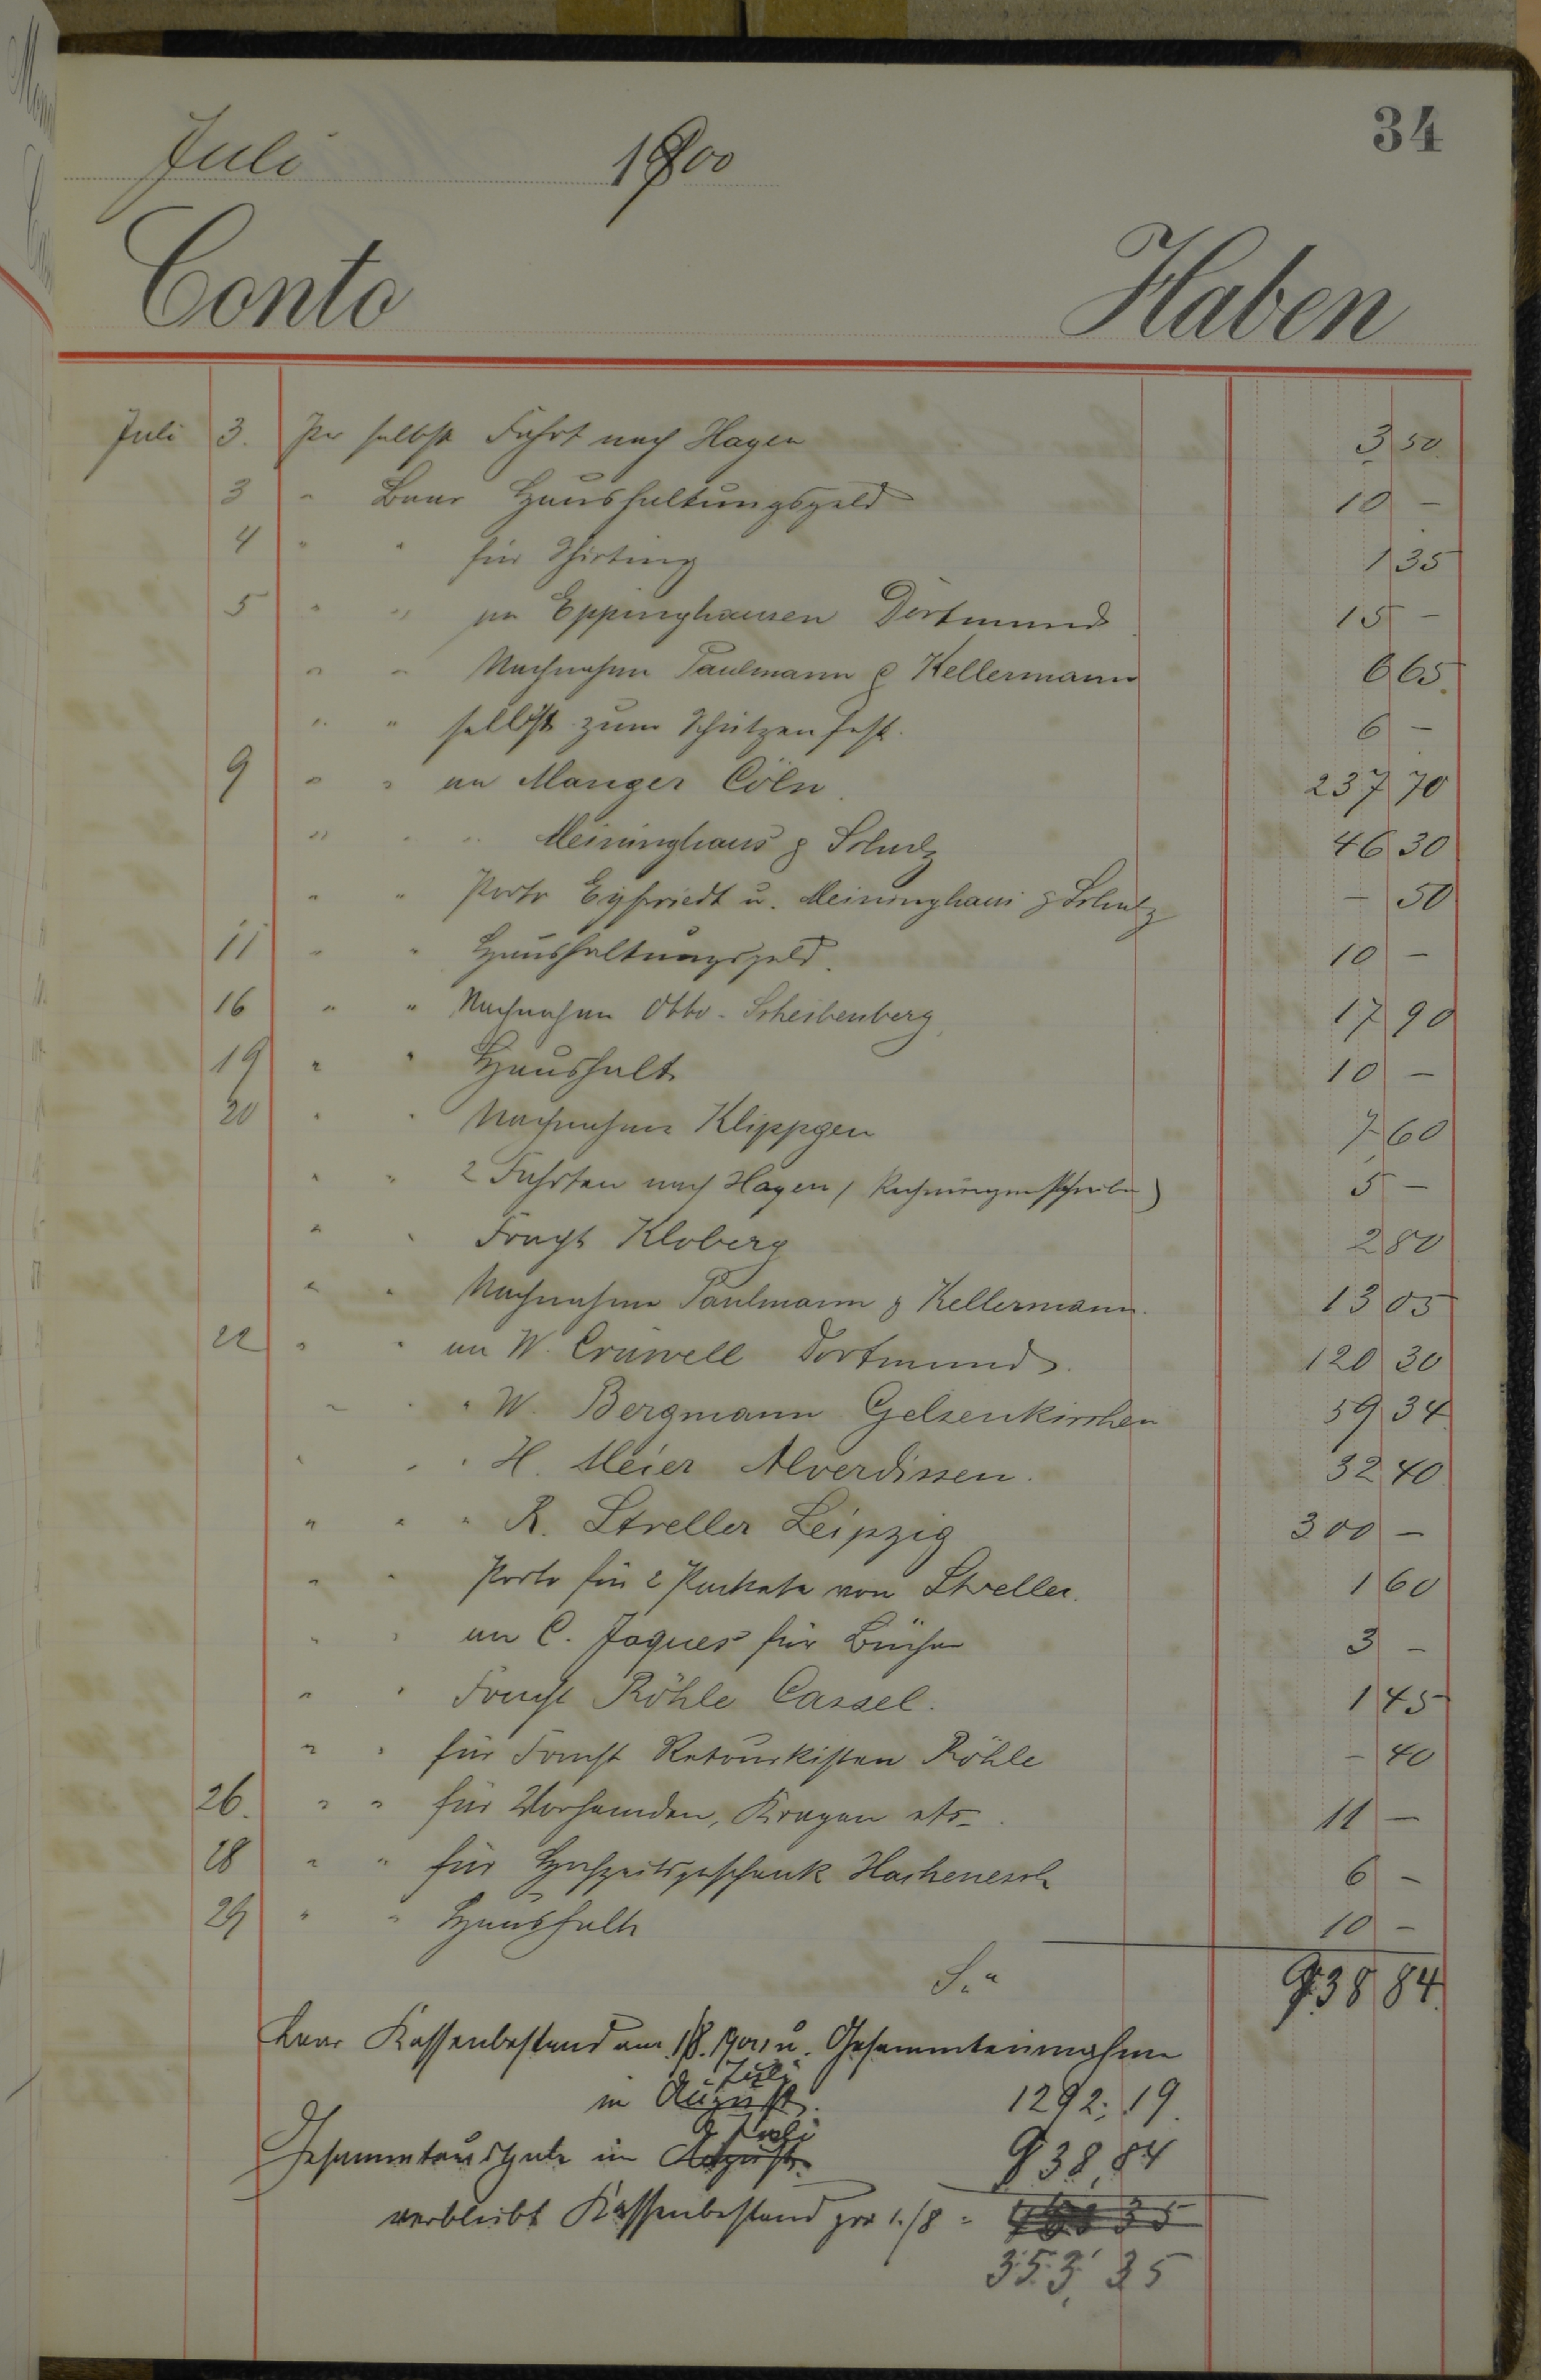 34
Juli 1900
Conto Haben
Juli 3. Per selbst Fahrt nach Hagen 3 50
3 " Baar Haushaltungsgeld 10 –
4 " " für Shirting 1 35
5 " " an Eppinghausen Dortmund 15 –
" " Nachnahme Paulmann & Kellermann 6 65
" " selbst zum Schützenfest. 6 –
9 " " an Manger Cöln. 237 70
" " " Meininghaus & Schulz 46 30
" " Porto Eyfriedt u. Meininghaus & Schulz – 50
11 " " Haushaltungsgeld. 10 –
16 " " Nachnahme Otto - Scheibenberg 17 90
19 " " Haushalt 10 –
20 " " Nachnahme Klippgen 7 60
" " 2 Fahrten nach Hagen (Rechnungen schreiben) 5 –
" " Fracht Kloberg 2 80
" " Nachnahme Paulmann & Kellermann. 13 05
22 " " an W. Crüwell Dortmund. 120 30
" " " W. Bergmann Gelsenkirchen 59 34
" " " H. Meier Alverdissen. 32 40
" " " R. Streller Leipzig 300 –
" " Porto für 2 Packete von Streller. 1 60
" " an C. Jaques für Bücher 3 –
" " Fracht Röhle Cassel. 1 45
" " für Fracht Retourkisten Röhle – 40
26. " " für Vorhemden, Kragen etc. 11 –
28 " " für Hochzeitsgeschenk Hachenesch 6 –
29 " " Haushalt 10 –
S.a 938 84
Baar Kassenbestand am 1/8. 1900 u. Gesammteinnahme
Juli
in August. 1292,19.
Juli
Gesammtausgabe im August 938,84
verbleibt Kassenbestand pro 1./8 =
353,35